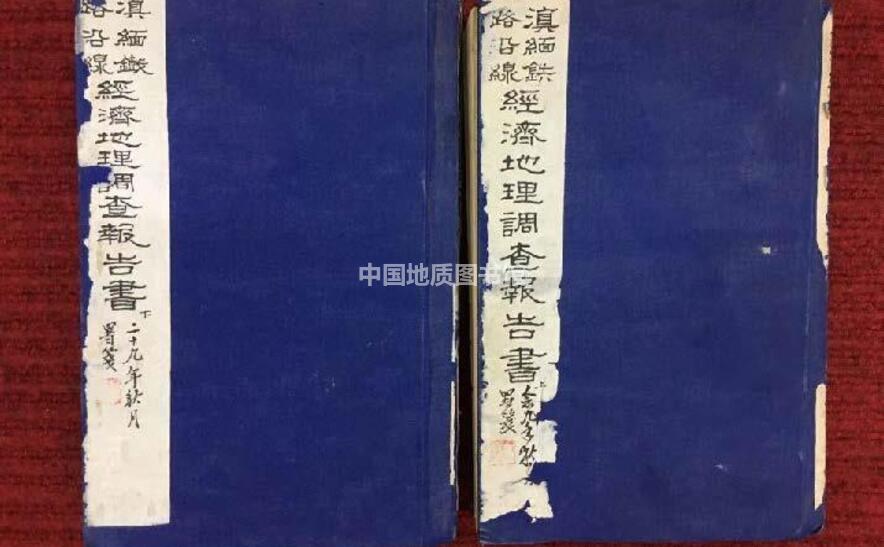 滇緬鐵
路沿線
經濟地理調查報告書
下
二十九年秋月
署箋
滇緬鉄
路沿線
經濟地理調查報告書
署箋
中国地质图书馆